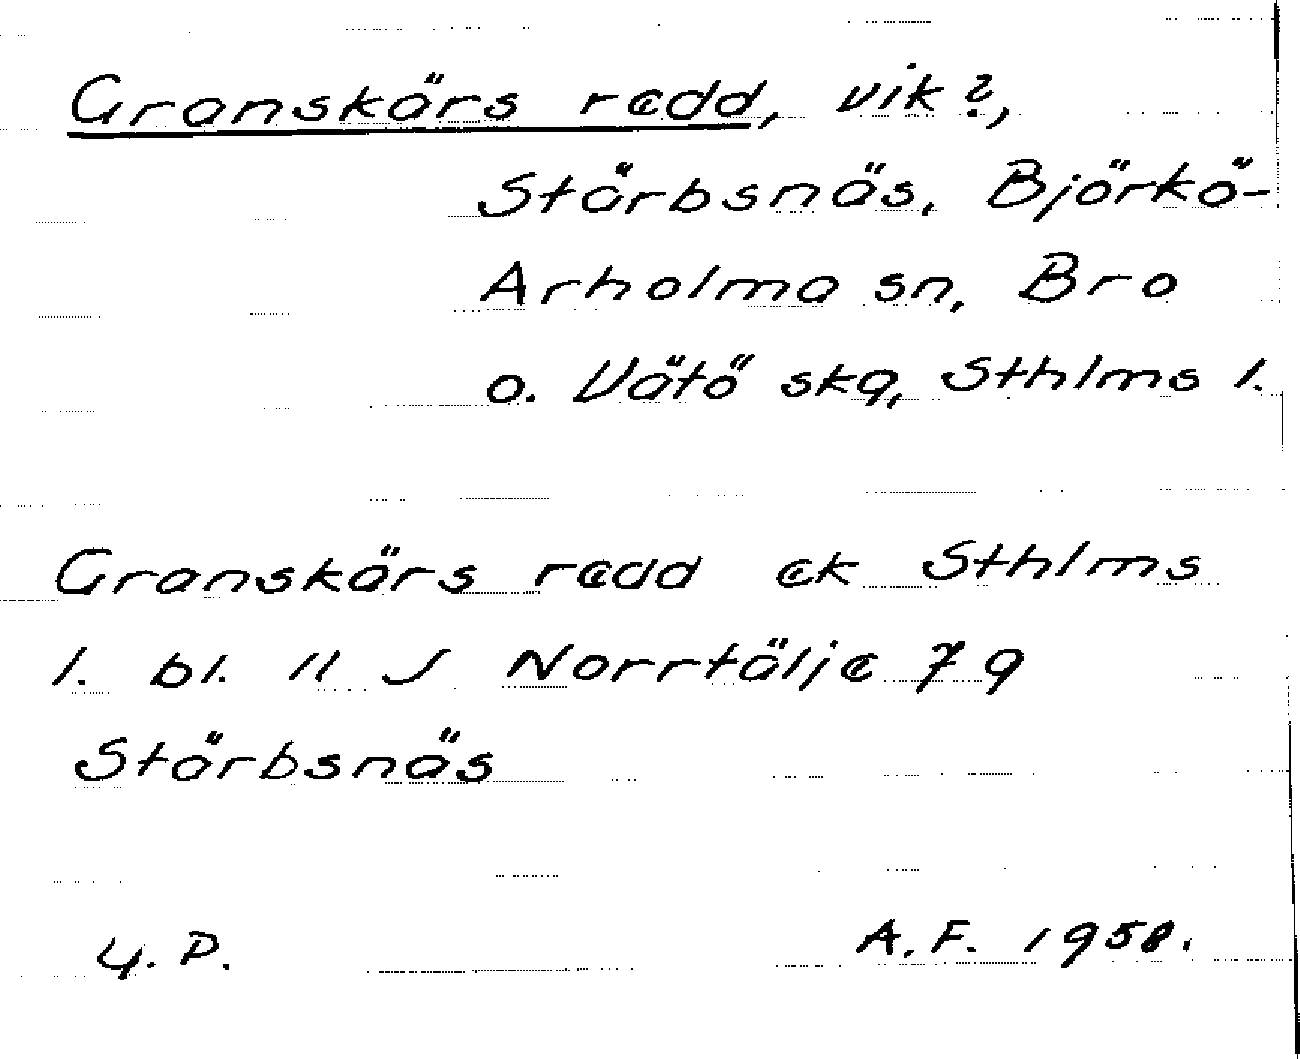 Granskärs redd, vik?,
Stärbsnäs, Björkö-
Arholma sn, Bro
o. Vätö skg, Sthlms l.
Granskärs redd ek Sthlms
l. bl. 11 J Norrtälje 79
Stärbsnäs
U. P. A. F. 1958.